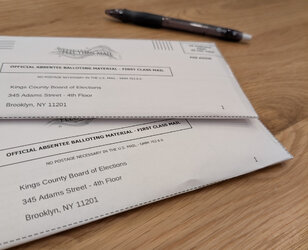 OFFICIAL ABSENTEE BALLOTING MATERIAL - FIRST CLASS MAIL
NO POSTAGE NECESSARY IN THE U.S. MAIL - DMM 703.8.0
Kings County Board of Elections
345 Adams Street - 4th Floor
Brooklyn, NY 11201
OFFICIAL ABSENTEE BALLOTING MATERIAL - FIRST CLASS MAIL
NO POSTAGE NECESSARY IN THE U.S. MAIL - DMM 703.8.0
Kings County Board of Elections
345 Adams Street - 4th Floor
Brooklyn, NY 11201